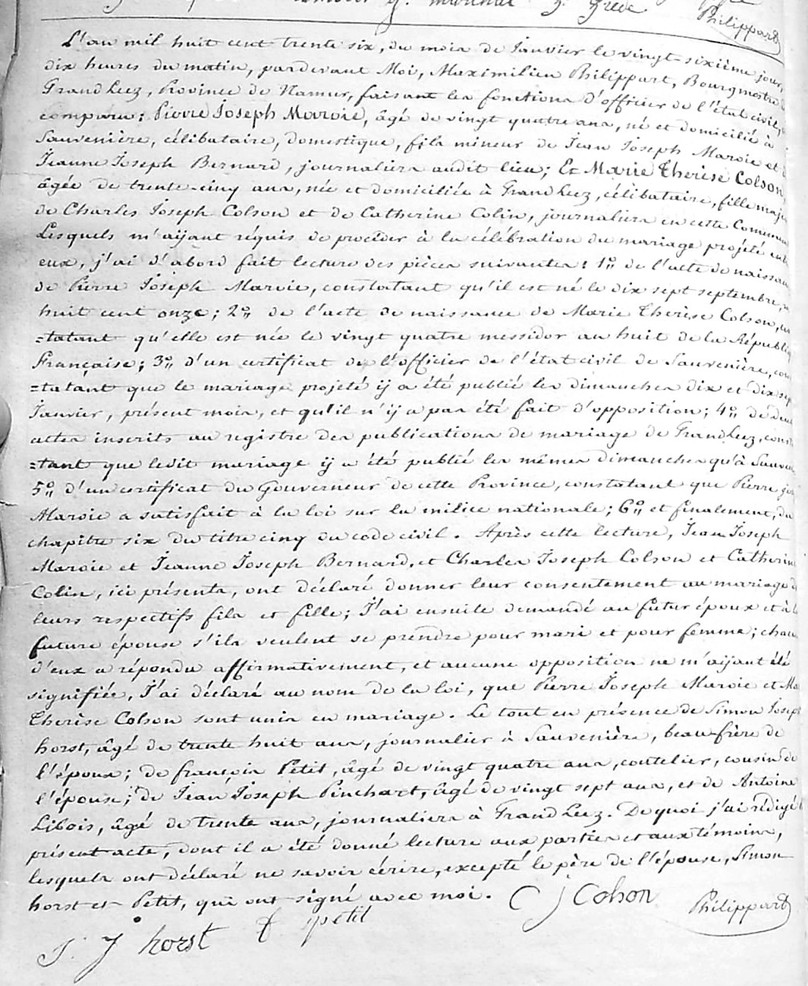 Philippart
L'an mil huit cent trente six, du mois de Janvier le vingt-sixième jour,
dix heures du matin, pardevant Moi, Maximilien Philippart, Bourgmestre
Grand Leez, Province de Namur, faisant les fonctions d'officier de l'état civil,
comparu: Pierre Joseph Maroie, âgé de vingt quatre ans, né et domicilié à
Sauvenière, célibataire, domestique, fils mineur de Jean Joseph Maroie et
Jeanne Joseph Bernard, journaliers audit lieu; Et Marie Therèse Colson
âgée de trente-cinq ans, née et domiciliée à Grand Leez, célibataire, fille maj
de Charles Joseph Colson et de Catherine Colin, journaliers en cette Commun
Lesquels m'aijant réquis de procéder à la célébration du mariage projeté ent
eux, j'ai d'abord fait lecture des pièces suivantes: 1º de l'acte de naissan
de Pierre Joseph Maroie, constatant qu'il est né le dix sept septembre,
huit cent onze; 2º de l'acte de naissance de Marie Therèse Colson,
=tatant qu'elle est née le vingt quatre messidor an huit de la Républiq
Française; 3º d'un certificat de l'officier de l'état civil de Sauvenière, con
=tatant que le mariage projeté ij a été publié les dimanches dix et dix sep
Janvier, présent mois, et qu'il n'ij a pas été fait d'opposition; 4º de deux
actes inscrits au registre des publications de mariage de Grand Leez, cons
=tant que ledit mariage ij a été publié les mêmes dimanches qu'à Sauven
5º d'un certificat du Gouverneur de cette Province, constatant que Pierre jo
Maroie a satisfait à la loi sur la milice nationale; 6º et finalement, du
chapitre six du titre cinq du code civil. Après cette lecture, Jean Joseph
Maroie et Jeanne Joseph Bernard, et Charles Joseph Colson et Catherin
Colin, ici présents, ont déclaré donner leur consentement au mariage d
leurs respectifs fils et fille; J'ai ensuite demandé au futur époux et à l
future épouse s'ils veulent se prendre pour mari et pour femme; chacu
d'eux a répondu affirmativement, et aucune opposition ne m'aijant été
signifiée, J'ai déclaré au nom de la loi, que Pierre Joseph Maroie et Ma
Therèse Colson sont unis en mariage. Le tout en présence de Simon Josep
horst, âgé de trente huit ans, journalier à Sauvenière, beau frère de
l'époux; de françois Petit, âgé de vingt quatre ans, coutelier, cousin de
l'épouse; de Jean Joseph Pinchart, âgé de vingt sept ans, et de Antoine
Libois, âgé de trente ans, journaliers à Grand Leez. De quoi j'ai rédigé l
présent acte, dont il a été donné lecture aux parties et aux témoins,
lesquels ont déclaré ne savoir écrire, excepté le père de l'épouse, Simon
horst et Petit, qui ont signé avec moi. C J Colson Philippart
S. J horst f petit